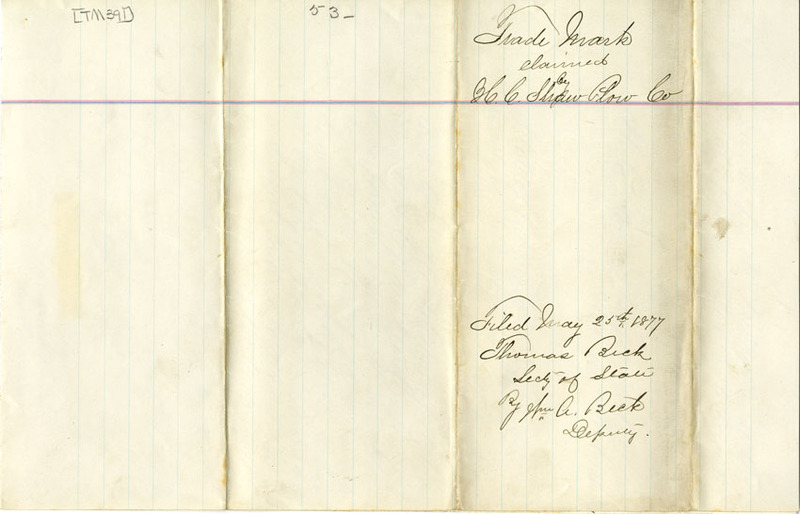 [TM391]
53-
Trade Mark
claimed
by
H. C. Shaw Plow Co
Filed May 25th, 1877
Thomas Beck
Secty of State
By Wm A. Beck
Deputy.